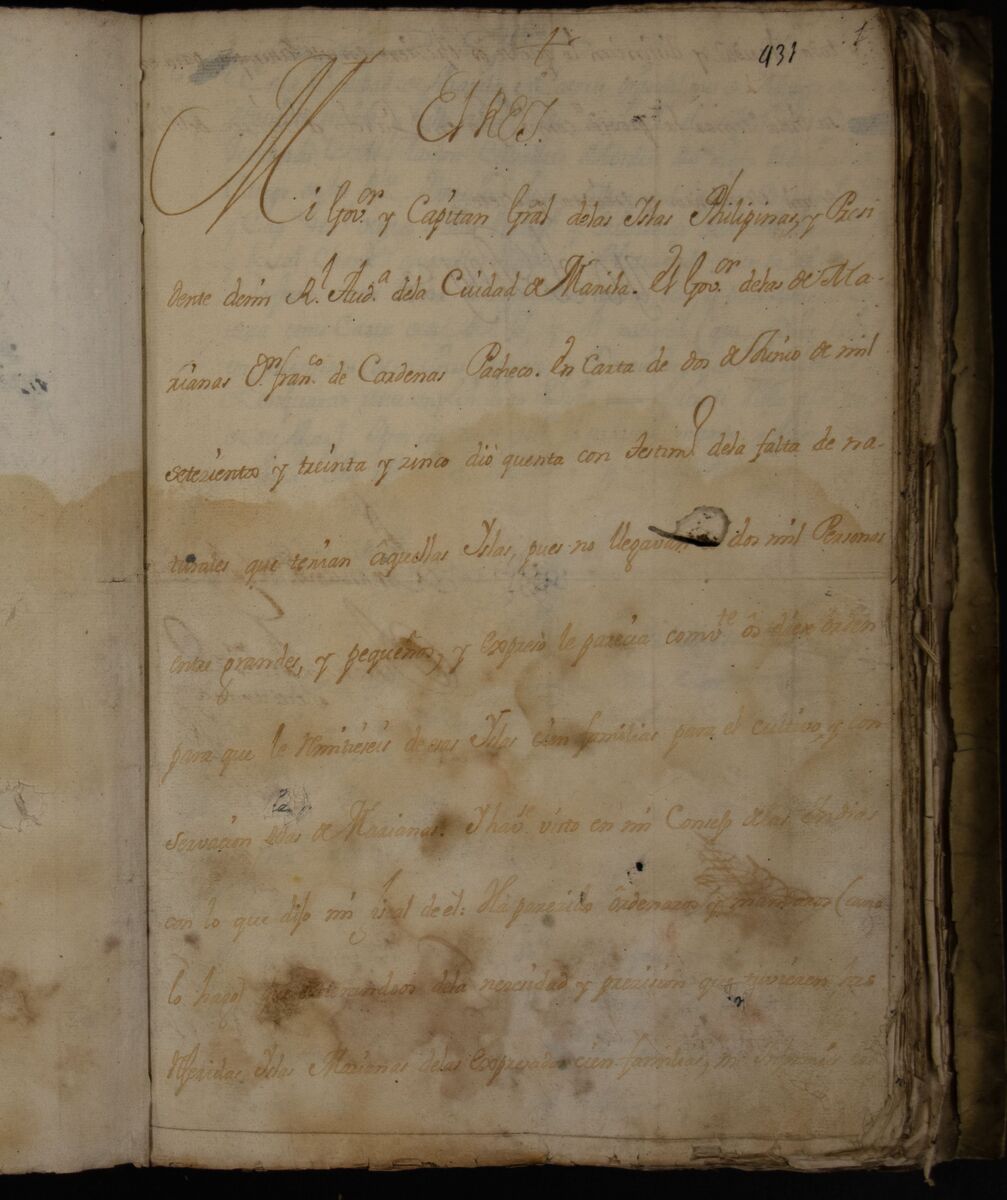 931
1
El REY.
Mi Gov.or y Capitan Grãl delas Yslas Philipinas, y Presi
dente demi R.l Aud.a dela Cuidad de Manila. El Gov.or delas de Ma-
rianas D.n fran.co de Cardenas Pacheco. en Carta de dos de Junio de mil
setezientos y treinta y zinco dió quenta con testim.o dela falta de na-
turales que tenian aquellas Yslas, pues no llegavan dos mil Personas
entre grandes, y pequeños, y expreso le parecia comv.te os diese orden
para que le remitieseis de esas Yslas cien familias para el cultivo, y con
servacion de Marianas. Y hav.do visto en mi Consejo delas Indias
con lo que dijo mi fiscal de el: Ha parecido ordenaros y mandaros (como
lo hago) dela necesidad y precision que tuvieren las
referidas Yslas Marianas delas expresadas cien familias,